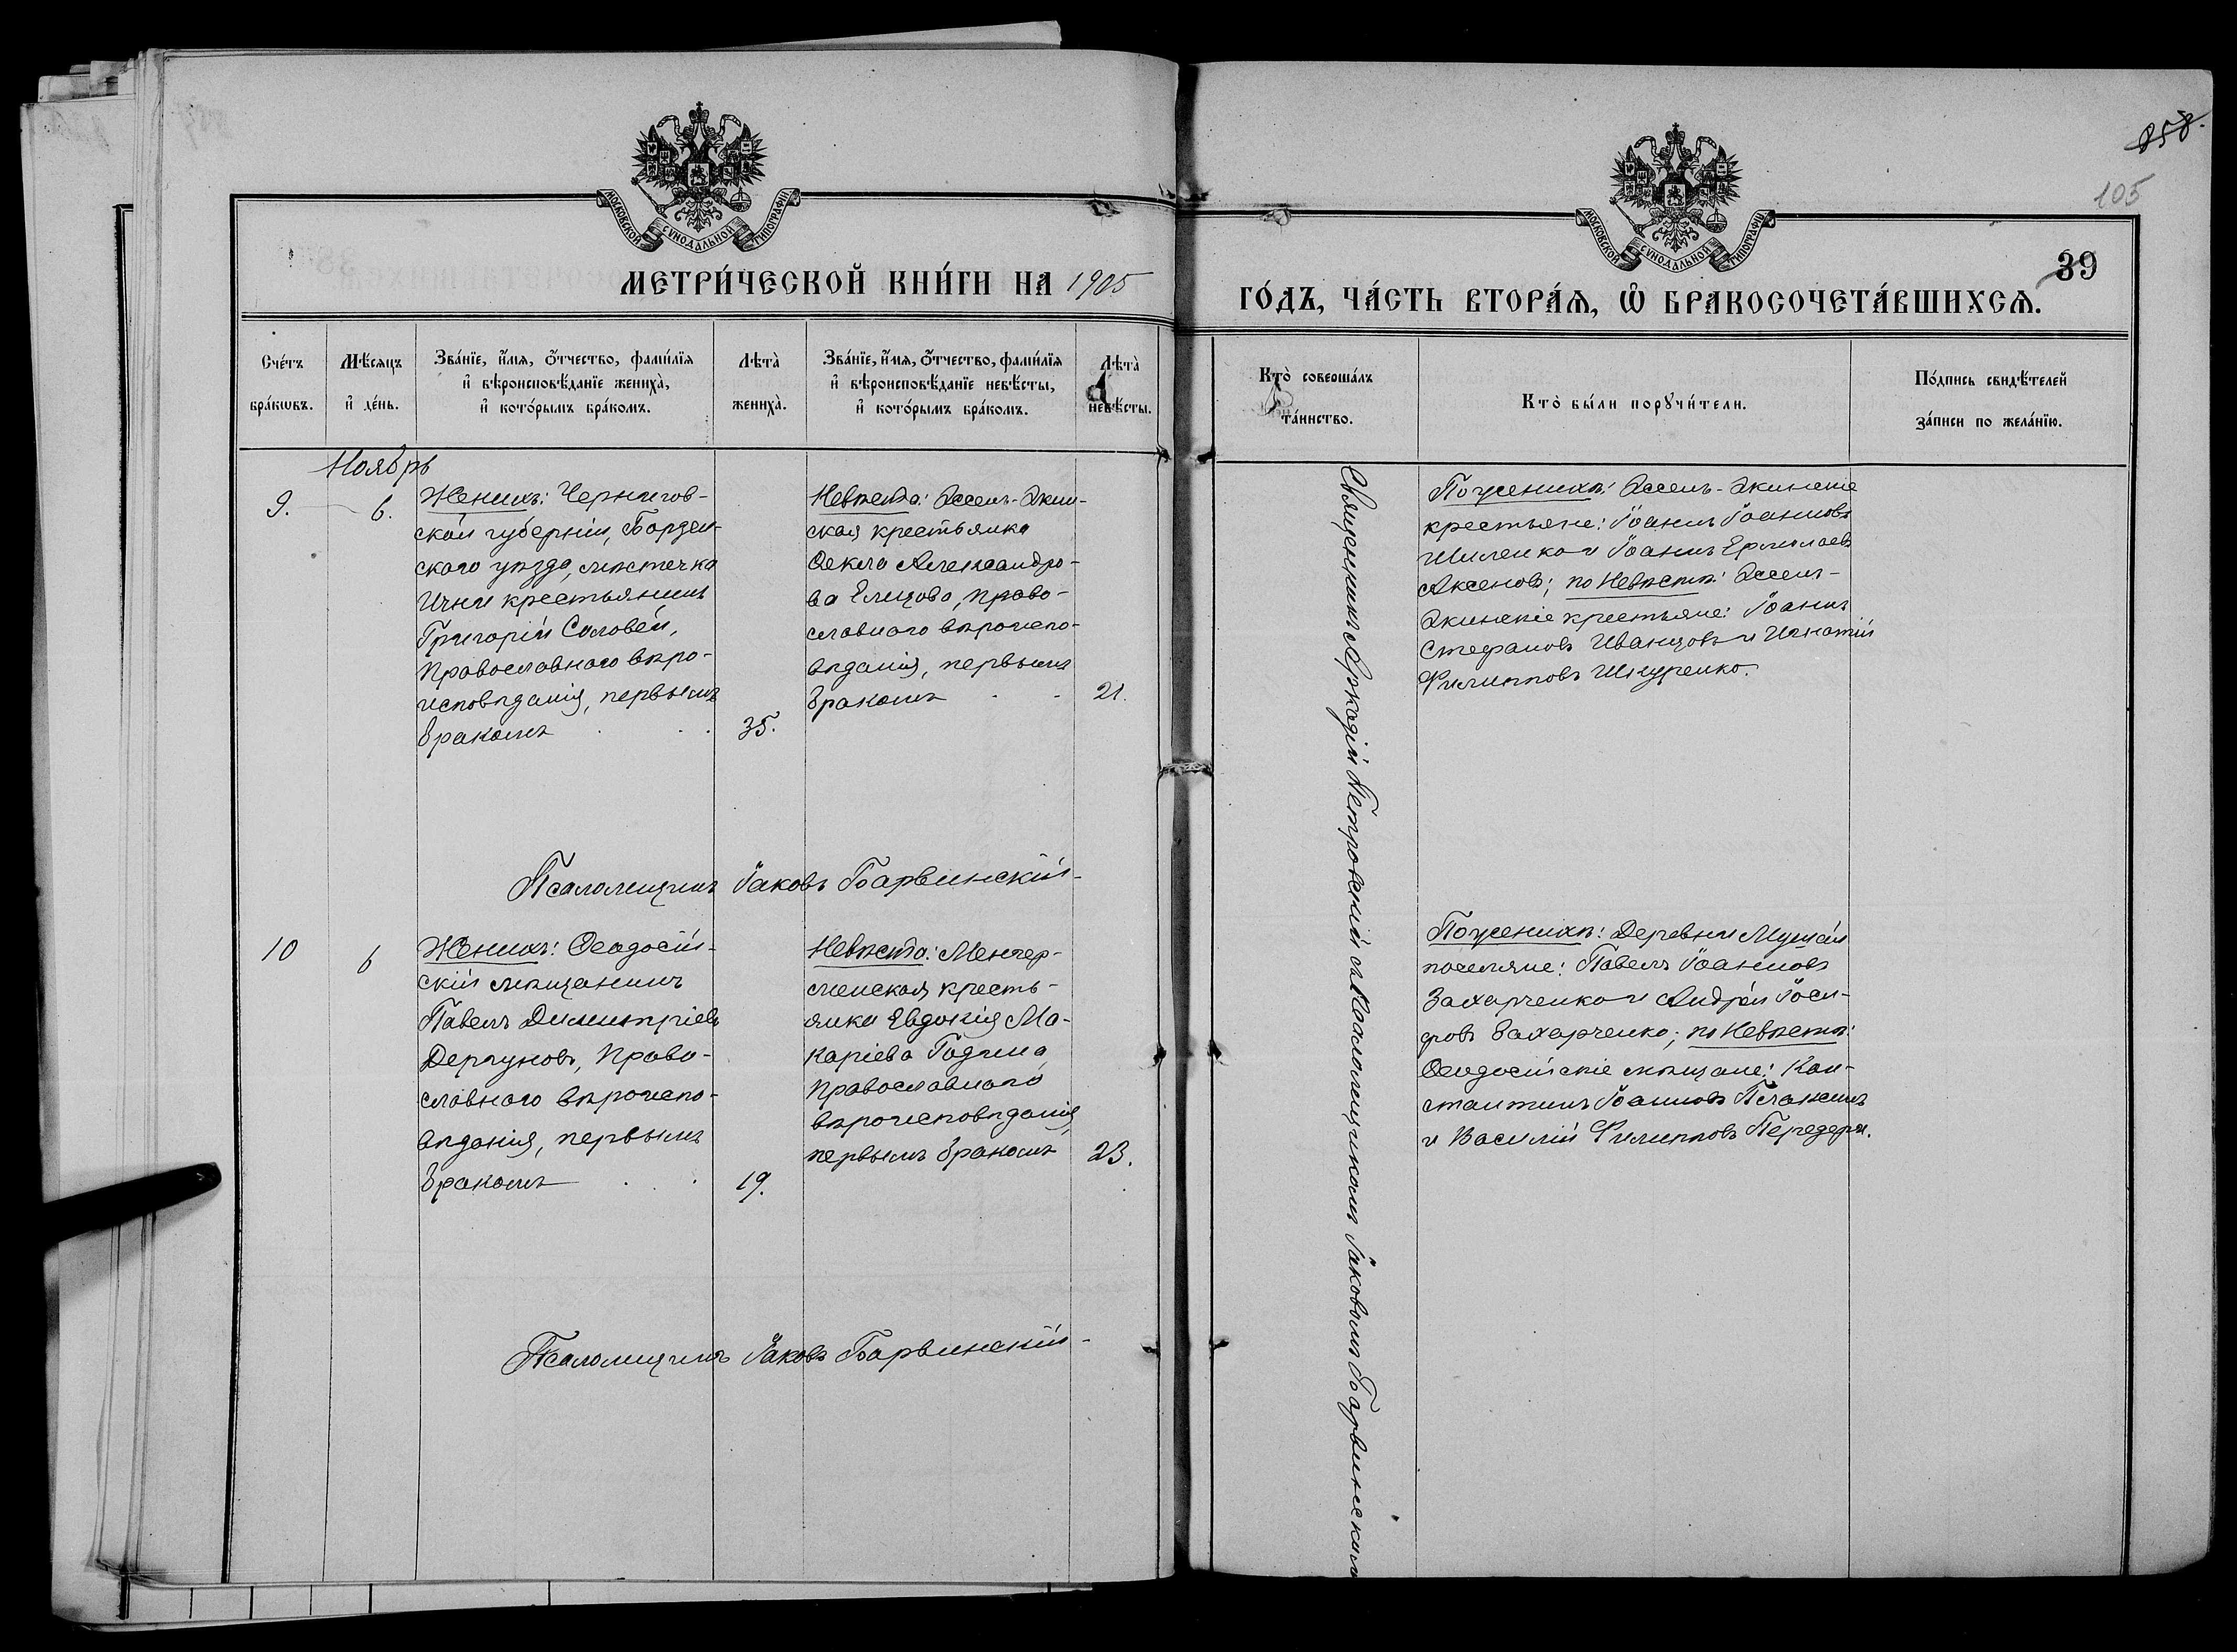 858.
105
39
МОСКОВСКОЙ СѴНОДАЛЬНОЙ ТИПОГРАФІИ
МЕТРИ́ЧЕСКОЙ КНИ́ГИ НА 1905
МОСКОВСКОЙ СѴНОДАЛЬНОЙ ТИПОГРАФІИ
ГО́ДЪ, ЧА́СТЬ ВТОРА́Ѧ, Ѡ БРАКОСОЧЕТА́ВШИХСѦ.
Сче́тъ
бра́кѡвъ.
Мѣ́сѧцъ
и҆ де́нь.
Зва́нїе, и҆́мѧ, ѻ҆́тчество, фами́лїѧ
и҆ вѣроисповѣ́данїе жениха̀,
и҆ кото́рымъ бра́комъ.
Лѣта̀
жениха̀.
Зва́нїе, и҆́мѧ, ѻ҆́тчество, фами́лїѧ
и҆ вѣроисповѣ́данїе невѣ́сты,
и҆ кото́рымъ бра́комъ.
Лѣта̀
невѣ́сты.
Кто̀ соверша́лъ
та́инство.
Кто̀ бы́ли порꙋчи́тели.
По́дпись свидѣ́телей
за́писи по жела́нїю.
Ноябрь
9.
6.
Женихъ: Чернигов-
ской губерніи, Борзен-
скаго уѣзда, мѣстечка
Ични крестьянинъ
Григорій Соловей,
православнаго вѣро-
исповѣданія, первымъ
бракомъ
35.
Невѣста: Ассемъ-Экин-
ская крестьянка
Ѳекла Александро-
ва Елицова, право-
славнаго вѣроиспо-
вѣданія, первымъ
бракомъ
21.
Священникъ Аркадій Петровскій съ Псаломщикомъ Іаковомъ Барвинскимъ
По женихѣ: Ассемъ-Экинскіе
крестьяне: Іоаннъ Іоанновъ
Шиленко и Іоаннъ Ермолаевъ
Аксеновъ; по Невѣстѣ: Ассемъ-
Экинскіе крестьяне: Іоаннъ
Стефановъ Иванцовъ и Игнатій
Филипповъ Шкуренко.
Псаломщикъ Іаковъ Барвинскій
10
6
Женихъ: Ѳеодосій-
скій мѣщанинъ
Павелъ Димитріевъ
Дергуновъ, право-
славнаго вѣроиспо-
вѣданія, первымъ
бракомъ
19.
Невѣста: Менгер-
менская кресть-
янка Евдокія Ма-
каріева Годына,
православнаго
вѣроисповѣданія,
первымъ бракомъ
23.
По женихѣ: Деревни Мушай
поселяне: Павелъ Іоанновъ
Захарченко и Андрей Іоси-
фовъ Захарченко; по Невѣстѣ:
Ѳеодосійскіе мѣщане: Кон-
стантинъ Іоанновъ Плаксинъ
и Василій Филипповъ Передерій.
Псаломщикъ Іаковъ Барвинскій